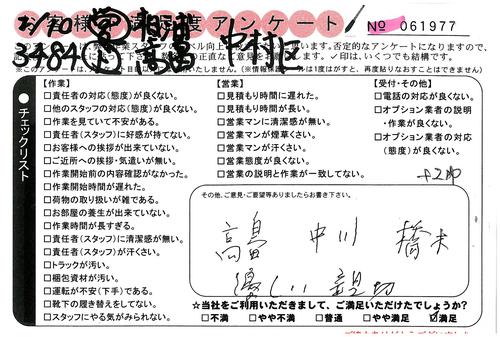 お客様満足度アンケート
№ 061977
12/10 営 相浦
3484 高畠 中村区
【作業】
□責任者の対応(態度)が良くない。
□他のスタッフの対応(態度)が良くない。
□作業を見ていて不安がある。
□責任者(スタッフ)に好感が持てない。
□お客様への挨拶が出来ていない。
□ご近所への挨拶・気遣いが無い。
□作業開始前の内容確認がなかった。
□作業開始時間が遅れた。
□荷物の取り扱いが雑である。
□お部屋の養生が出来ていない。
□作業時間が長すぎる。
□責任者(スタッフ)に清潔感が無い。
□責任者(スタッフ)が汗くさい。
□トラックが汚い。
□梱包資材が汚い。
□運転が不安(下手)である。
□靴下の履き替えをしてない。
□スタッフにやる気がみられない。
【営業】
□見積もり時間に遅れた。
□見積もり時間が長い。
□営業マンに清潔感が無い。
□営業マンが煙草くさい。
□営業マンが汗くさい。
□営業態度が良くない。
□営業の説明と作業が一致してない。
【受付・その他】
□電話の対応が良くない。
□オプション業者の説明
・作業が良くない。
□オプション業者の対応
(態度)が良くない。
●チェックリスト
その他、ご意見・ご要望等ありましたらお書き下さい。
高畠 中川 橋本
優しい 親切
☆当社をご利用いただきまして、ご満足いただけたでしょうか?
□不満 □やや不満 □普通 □やや満足 ☑満足